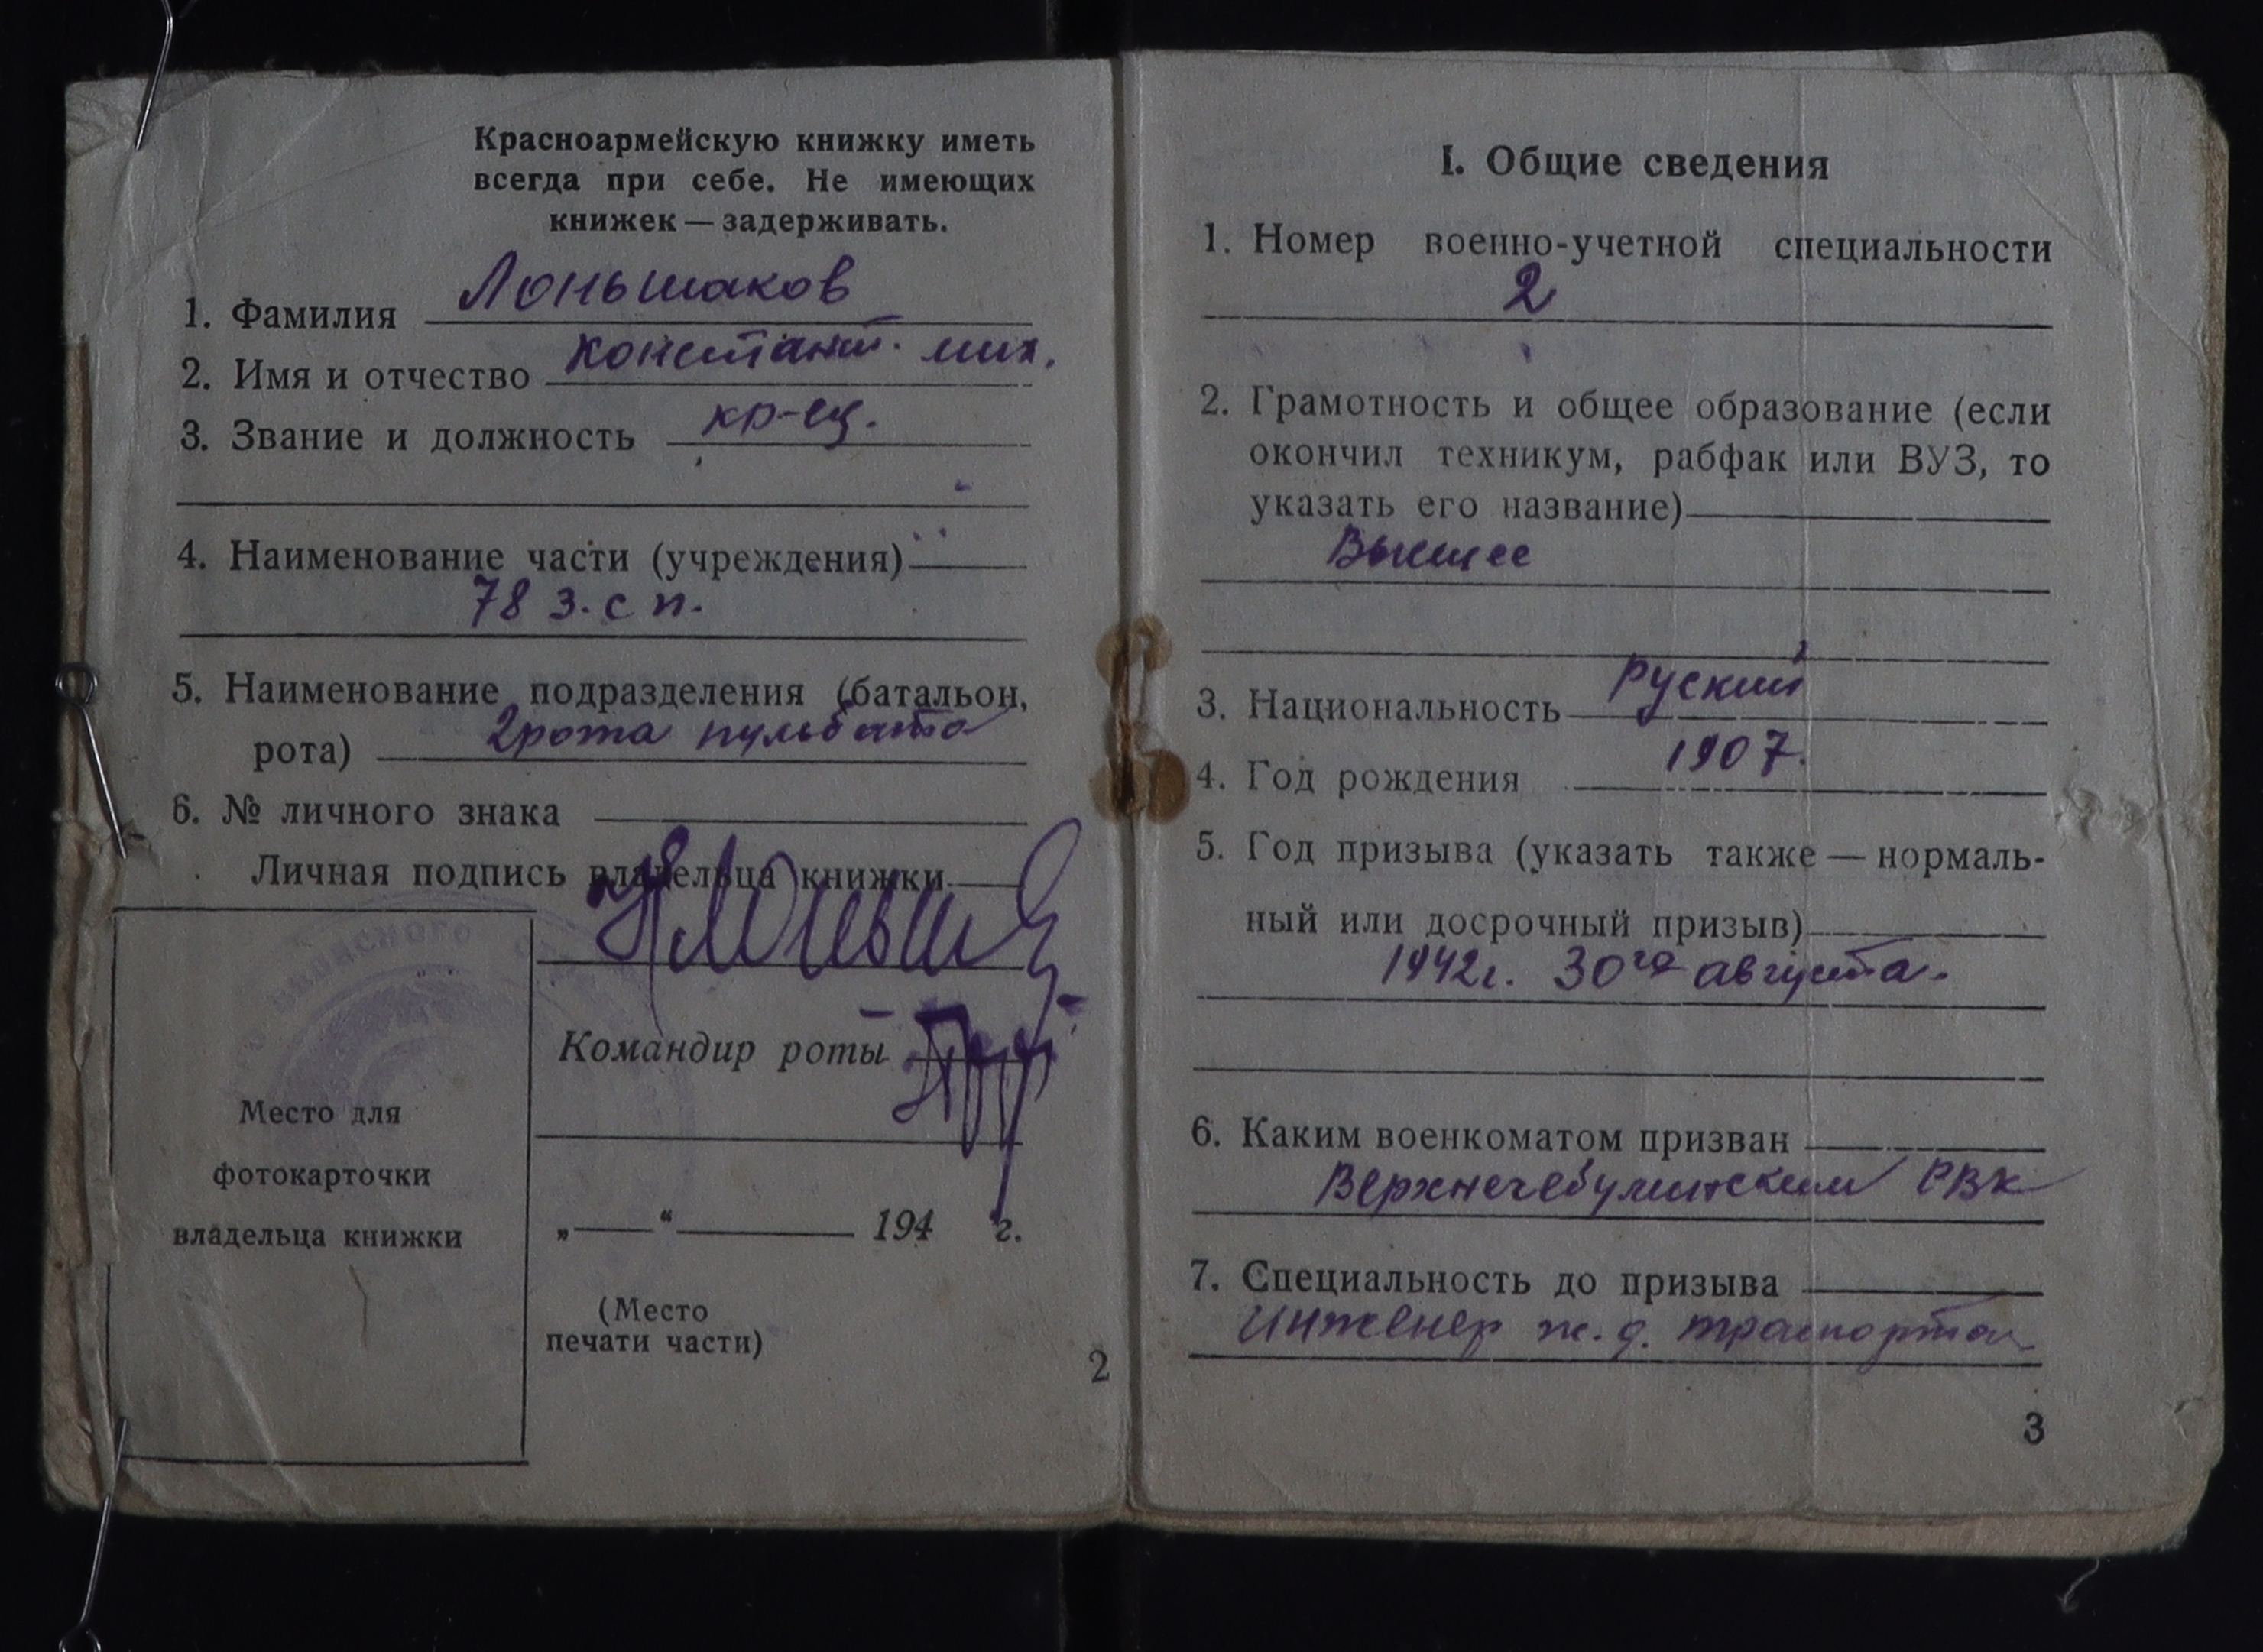 Красноармейскую книжку иметь
всегда при себе. Не имеющих
книжек — задерживать.
1. Фамилия Лоньшаков
2. Имя и отчество Констант. Мих.
3. Звание и должность кр-ец.
4. Наименование части (учреждения)
78 з. с п.
5. Наименование подразделения (батальон,
рота) 2 рота пульбата
6. № личного знака
Личная подпись владельца книжки
Командир роты
„ “ 194 г.
Место для
фотокарточки
владельца книжки
(Место
печати части)
2
I. Общие сведения
1. Номер военно-учетной специальности
2
2. Грамотность и общее образование (если
окончил техникум, рабфак или ВУЗ, то
указать его название)
Высшее
3. Национальность Руский
4. Год рождения 1907.
5. Год призыва (указать также — нормаль-
ный или досрочный призыв)
1942г. 30го августа.
6. Каким военкоматом призван
Верхнечебулинским РВК
7. Специальность до призыва
Инженер ж. д. транспорта
3